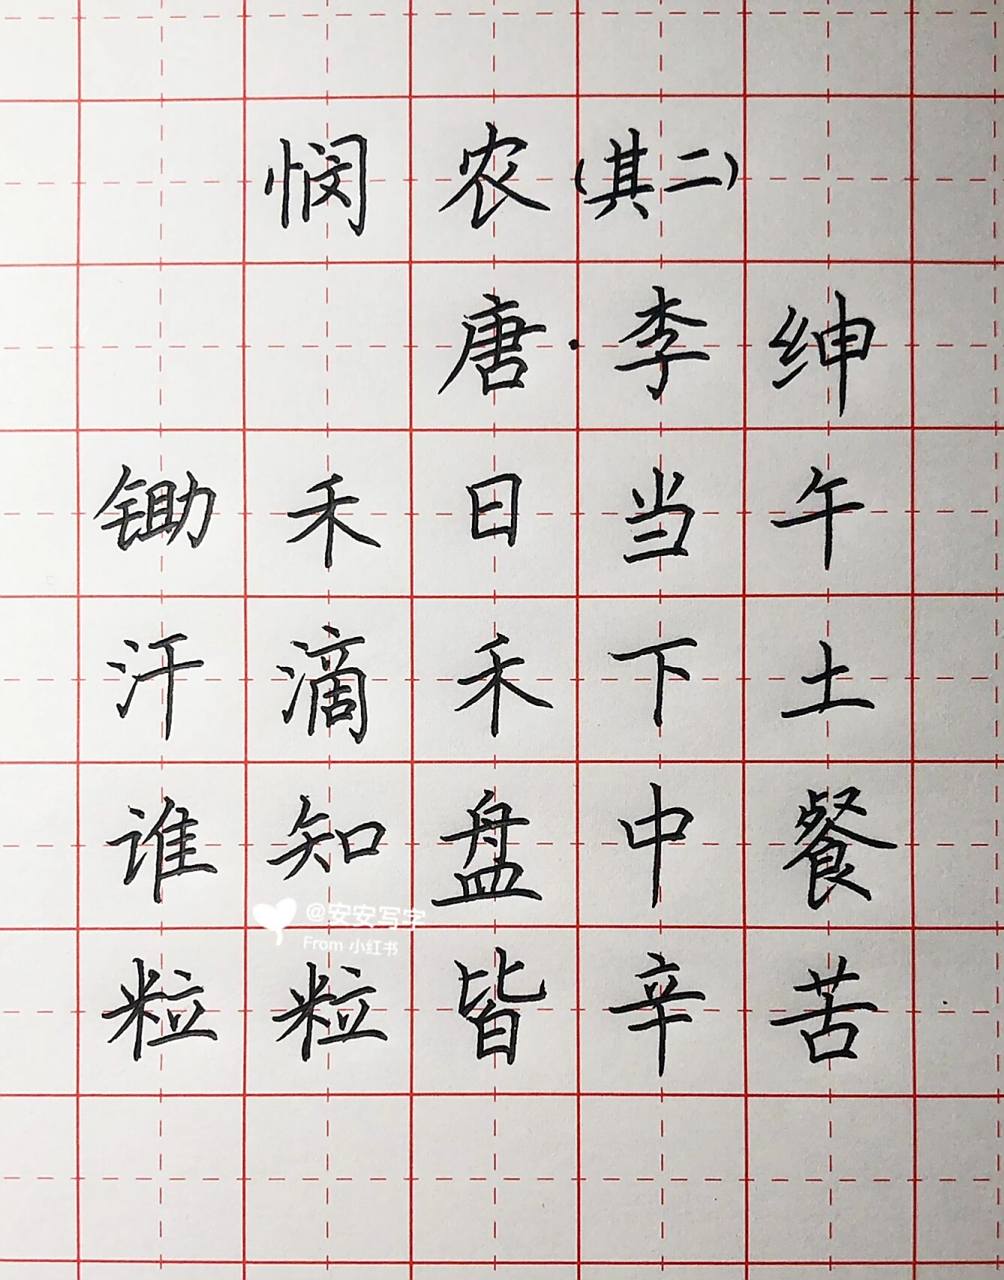 悯农(其二)
唐·李绅
锄禾日当午
汗滴禾下土
谁知盘中餐
@安安写字
From 小红书
粒粒皆辛苦